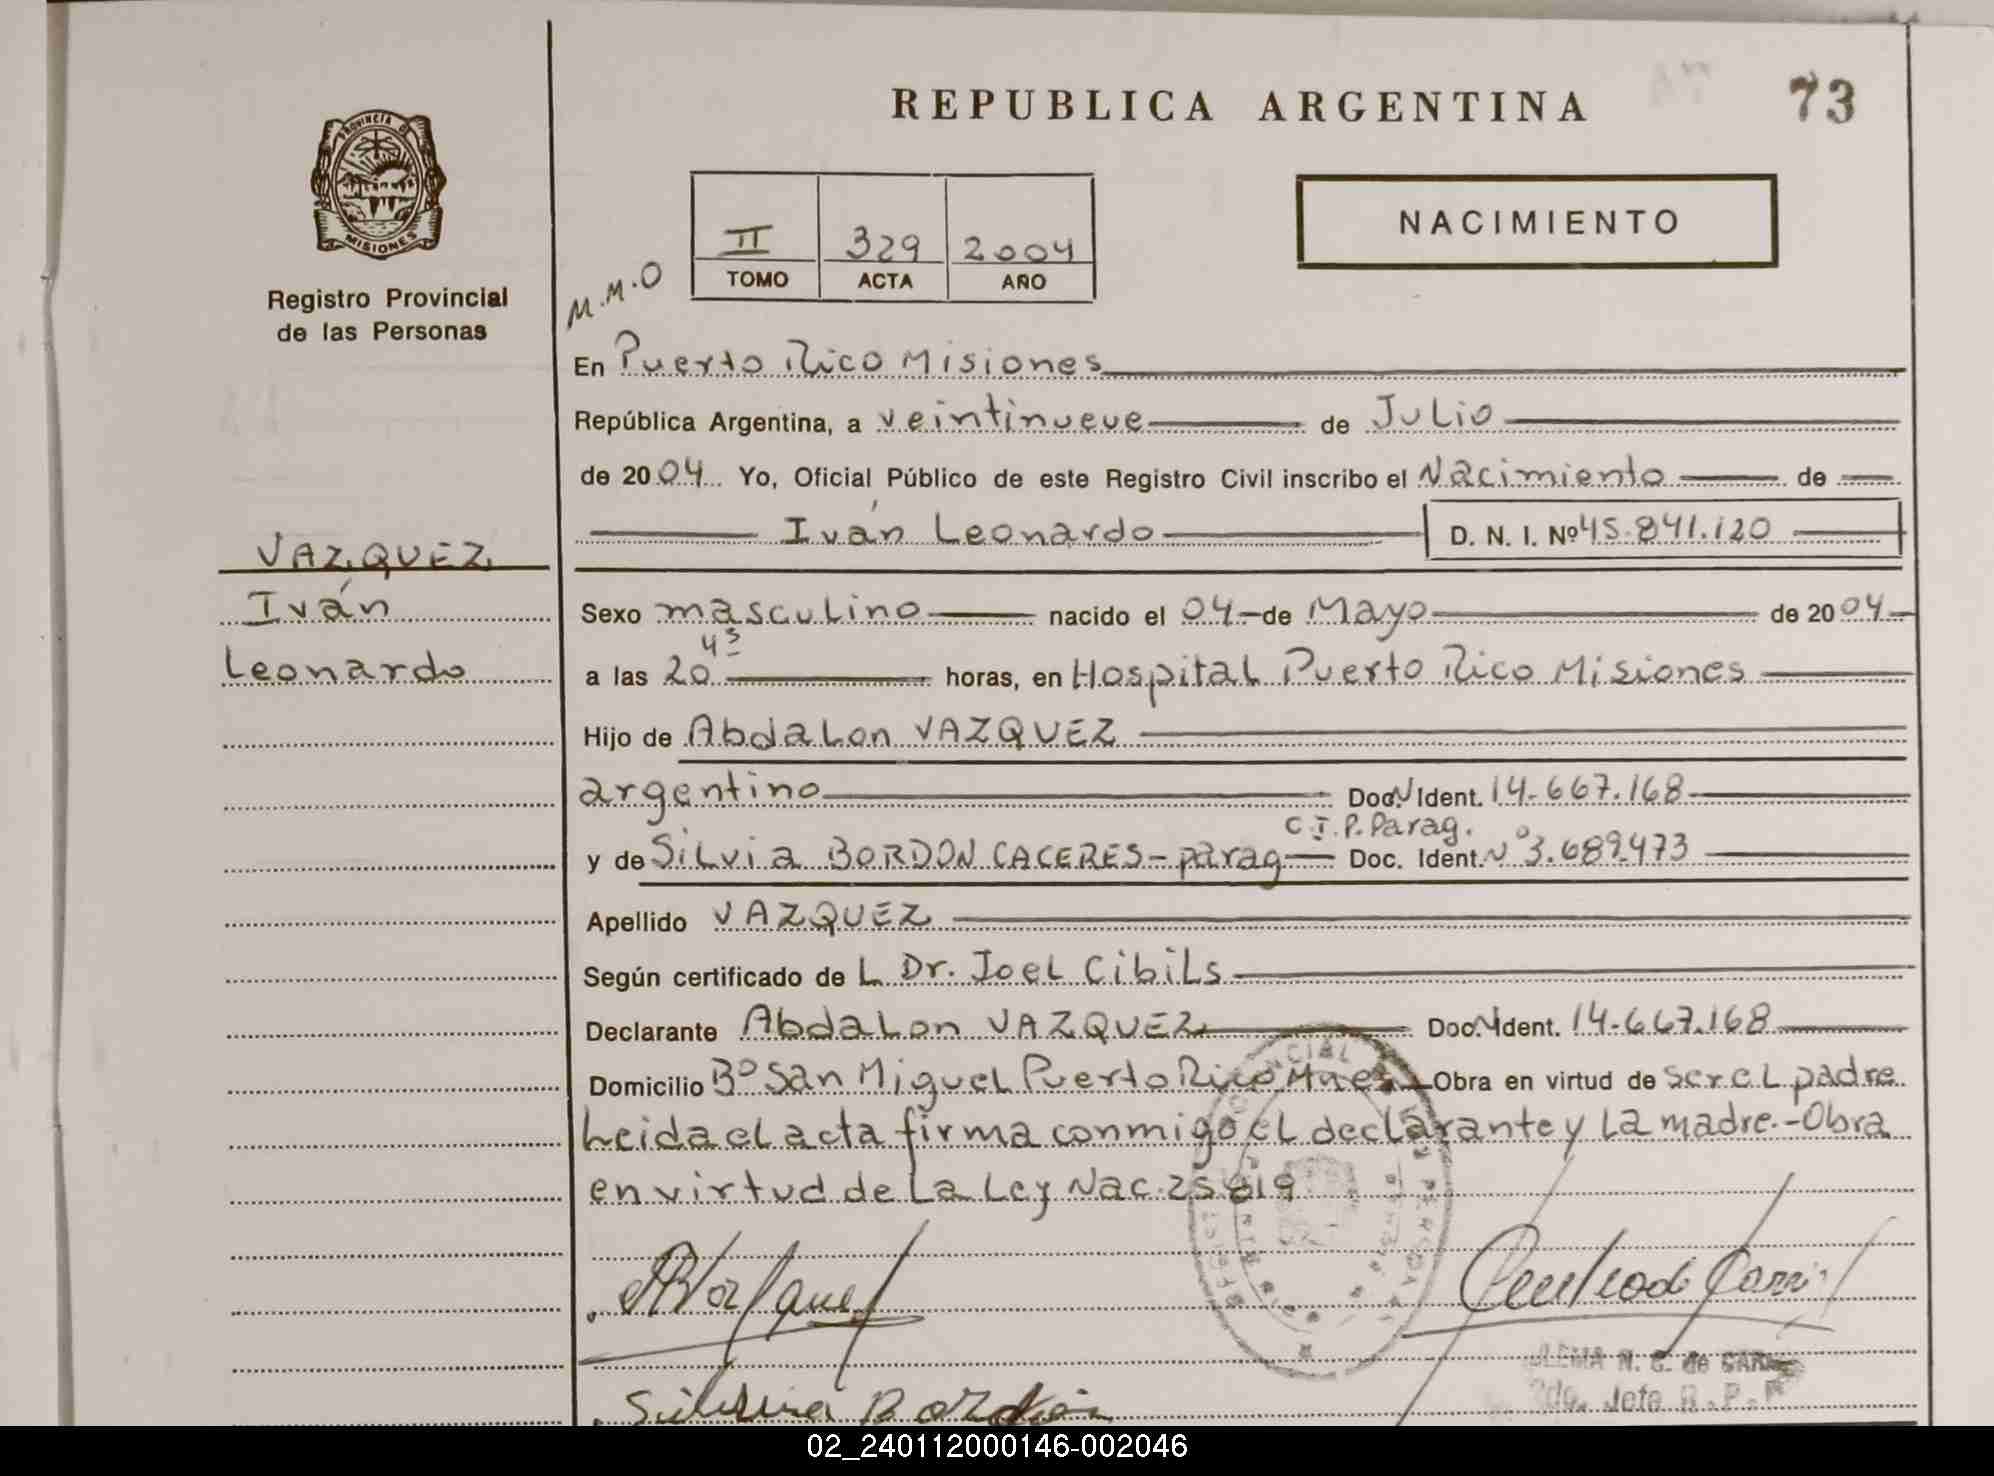 REPUBLICA ARGENTINA
73
PROVINCIA D
MISIONES
Registro Provincial
de las Personas
II 329 2004
TOMO ACTA AÑO
NACIMIENTO
M.M.O
En Puerto Rico Misiones
República Argentina, a veintinueve de Julio
de 2004 Yo, Oficial Público de este Registro Civil inscribo el Nacimiento de
Iván Leonardo D. N. I. Nº 45.841.120
VAZQUEZ
Iván
Leonardo
Sexo masculino nacido el 04 de Mayo de 2004
a las 20 45 horas, en Hospital Puerto Rico Misiones
Hijo de Abdalon VAZQUEZ
argentino Doc. Ident. 14.667.168
C.I.P. Parag.
y de Silvia BORDON CACERES - parag Doc. Ident. Nº 3.689.473
Apellido VAZQUEZ
Según certificado de L Dr. Joel Cibils
Declarante Abdalon VAZQUEZ Doc. Ident. 14.667.168
Domicilio Bº San Miguel Puerto Rico Mnes Obra en virtud de ser el padre
Leida el acta firma conmigo el declarante y La madre.-Obra
en virtud de La Ley Nac. 25819
N. C. de
2do. Jefe R. P. P
02_240112000146-002046